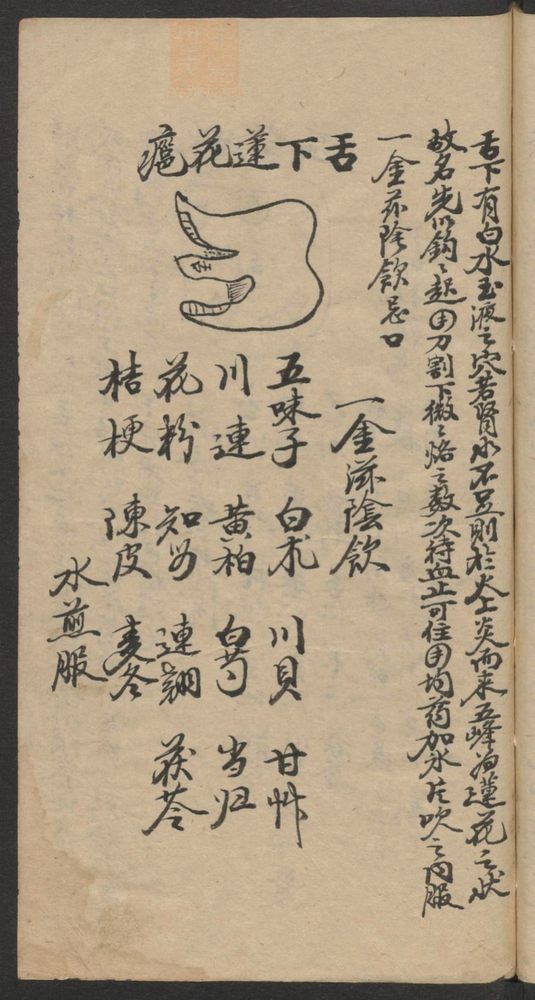 舌下有白水玉液之穴若腎水不足則於火上炎而来五峰如蓮花之状
故名先以鈎々起用刀割下微々烙之数次待血止可住用均药加氷片吹之内服
一金滋陰飲忌口
舌下蓮花㾴
一金滋陰飲
五味子 白朮 川貝 甘艸
川連 黃柏 白芍 当归
花粉 知母 連翹 茯苓
桔梗 陳皮 麦冬
水煎服